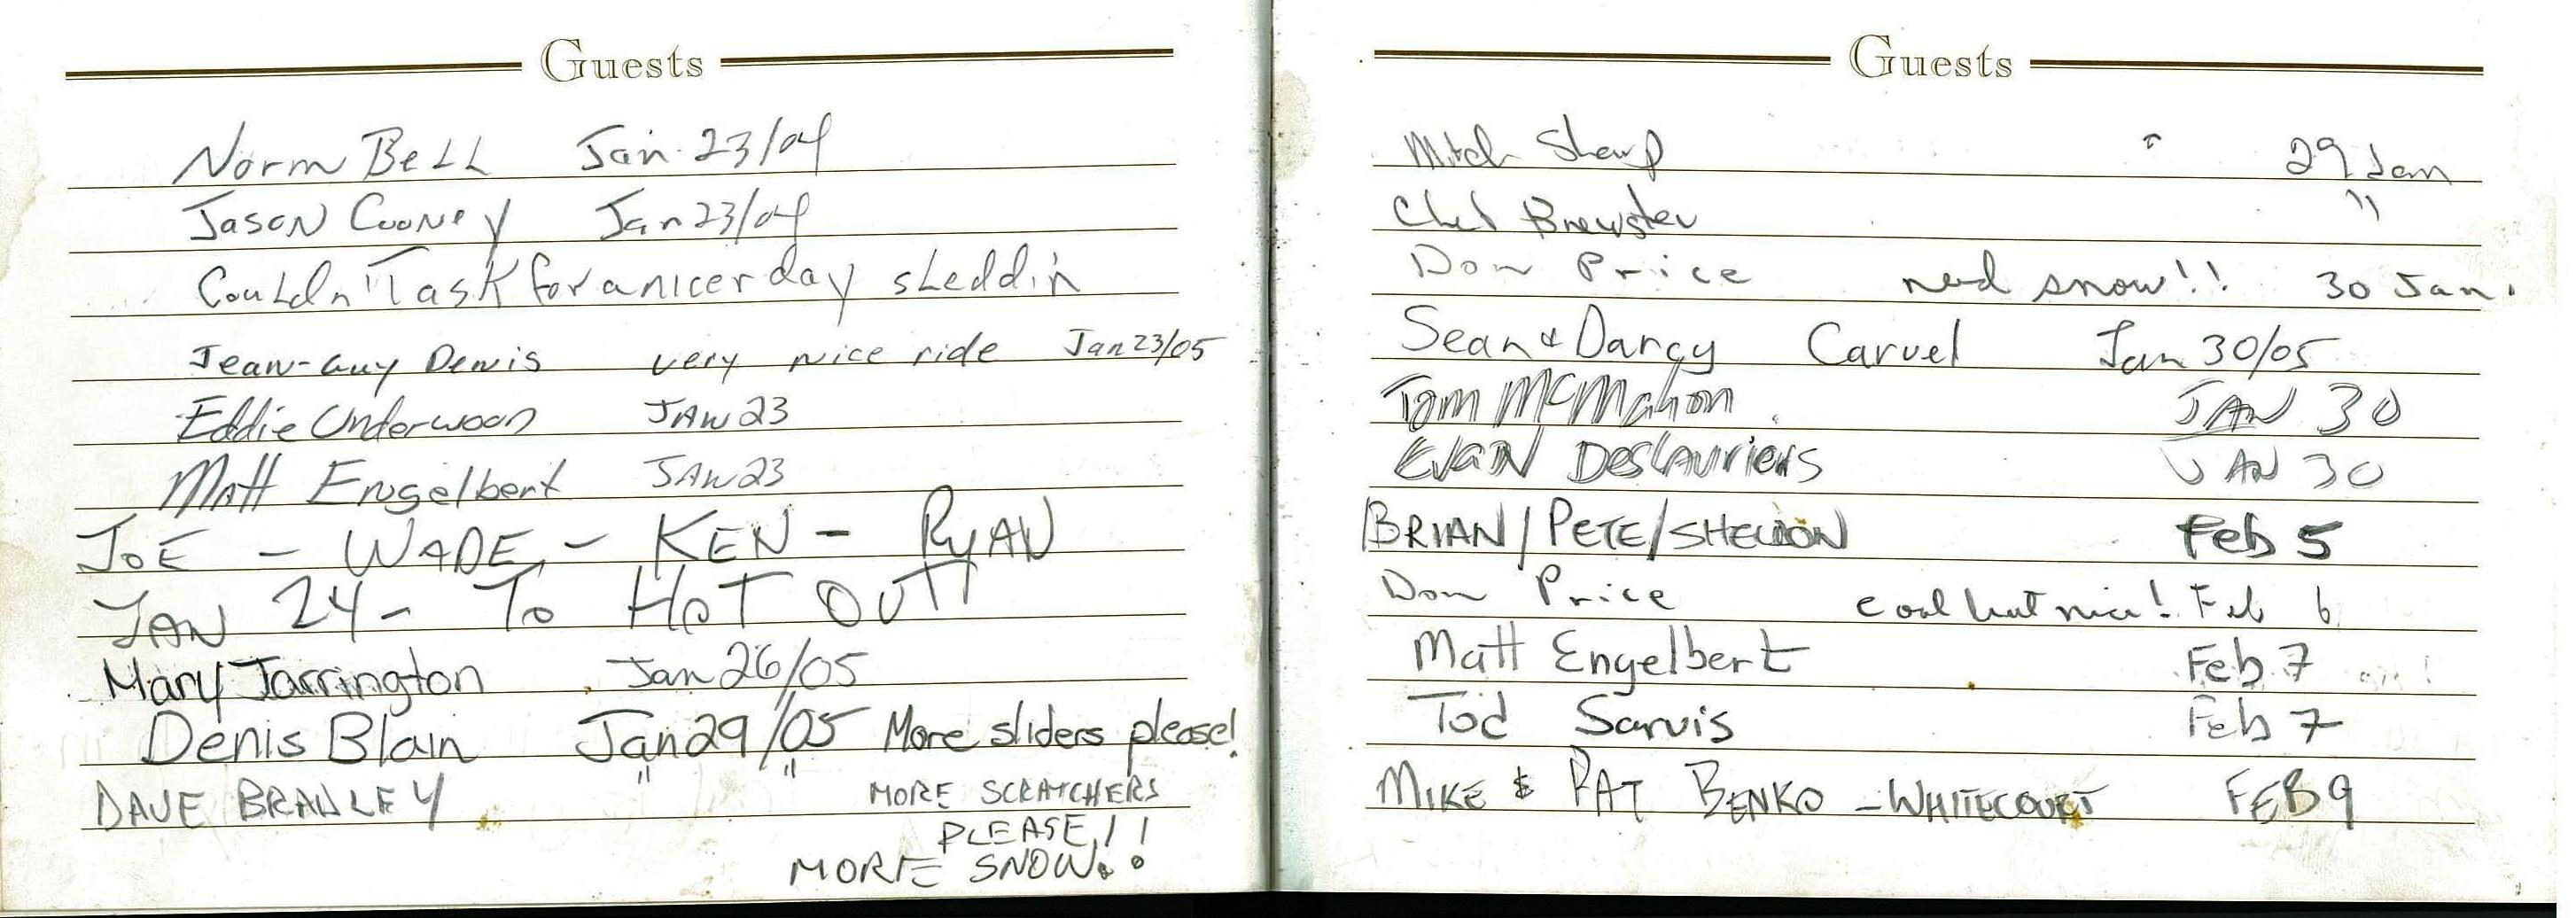 Guests
Norm BeLL Jan 23/04
Jason Cooney Jan 23/04
Couldn't ask for a nicer day sLeddin
Jean-Guy Denis very nice ride Jan 23/05
Eddie Underwood JAN 23
Matt Engelbert JAN 23
JOE - WADE - KEN - RYAN
JAN 24 - TO HOT OUT!
Mary Jarrington Jan 26/05
Denis Blain Jan 29/05 More sliders please!
DAVE BRANLEY " " MORE SCRATCHERS
PLEASE!!
MORE SNOW!!
Guests
Mitch Sharp 29 Jan
Chet Brewster "
Don Price need snow!! 30 Jan.
Sean & Darcy Carvel Jan 30/05
Tom McMahon JAN 30
EVAN Deslauriers JAN 30
BRIAN/PETE/SHELDON Feb 5
Don Price cool but nice! Feb 6
Matt Engelbert Feb 7
Tod Sarvis Feb 7
MIKE & PAT BENKO - WHITECOURT FEB 9